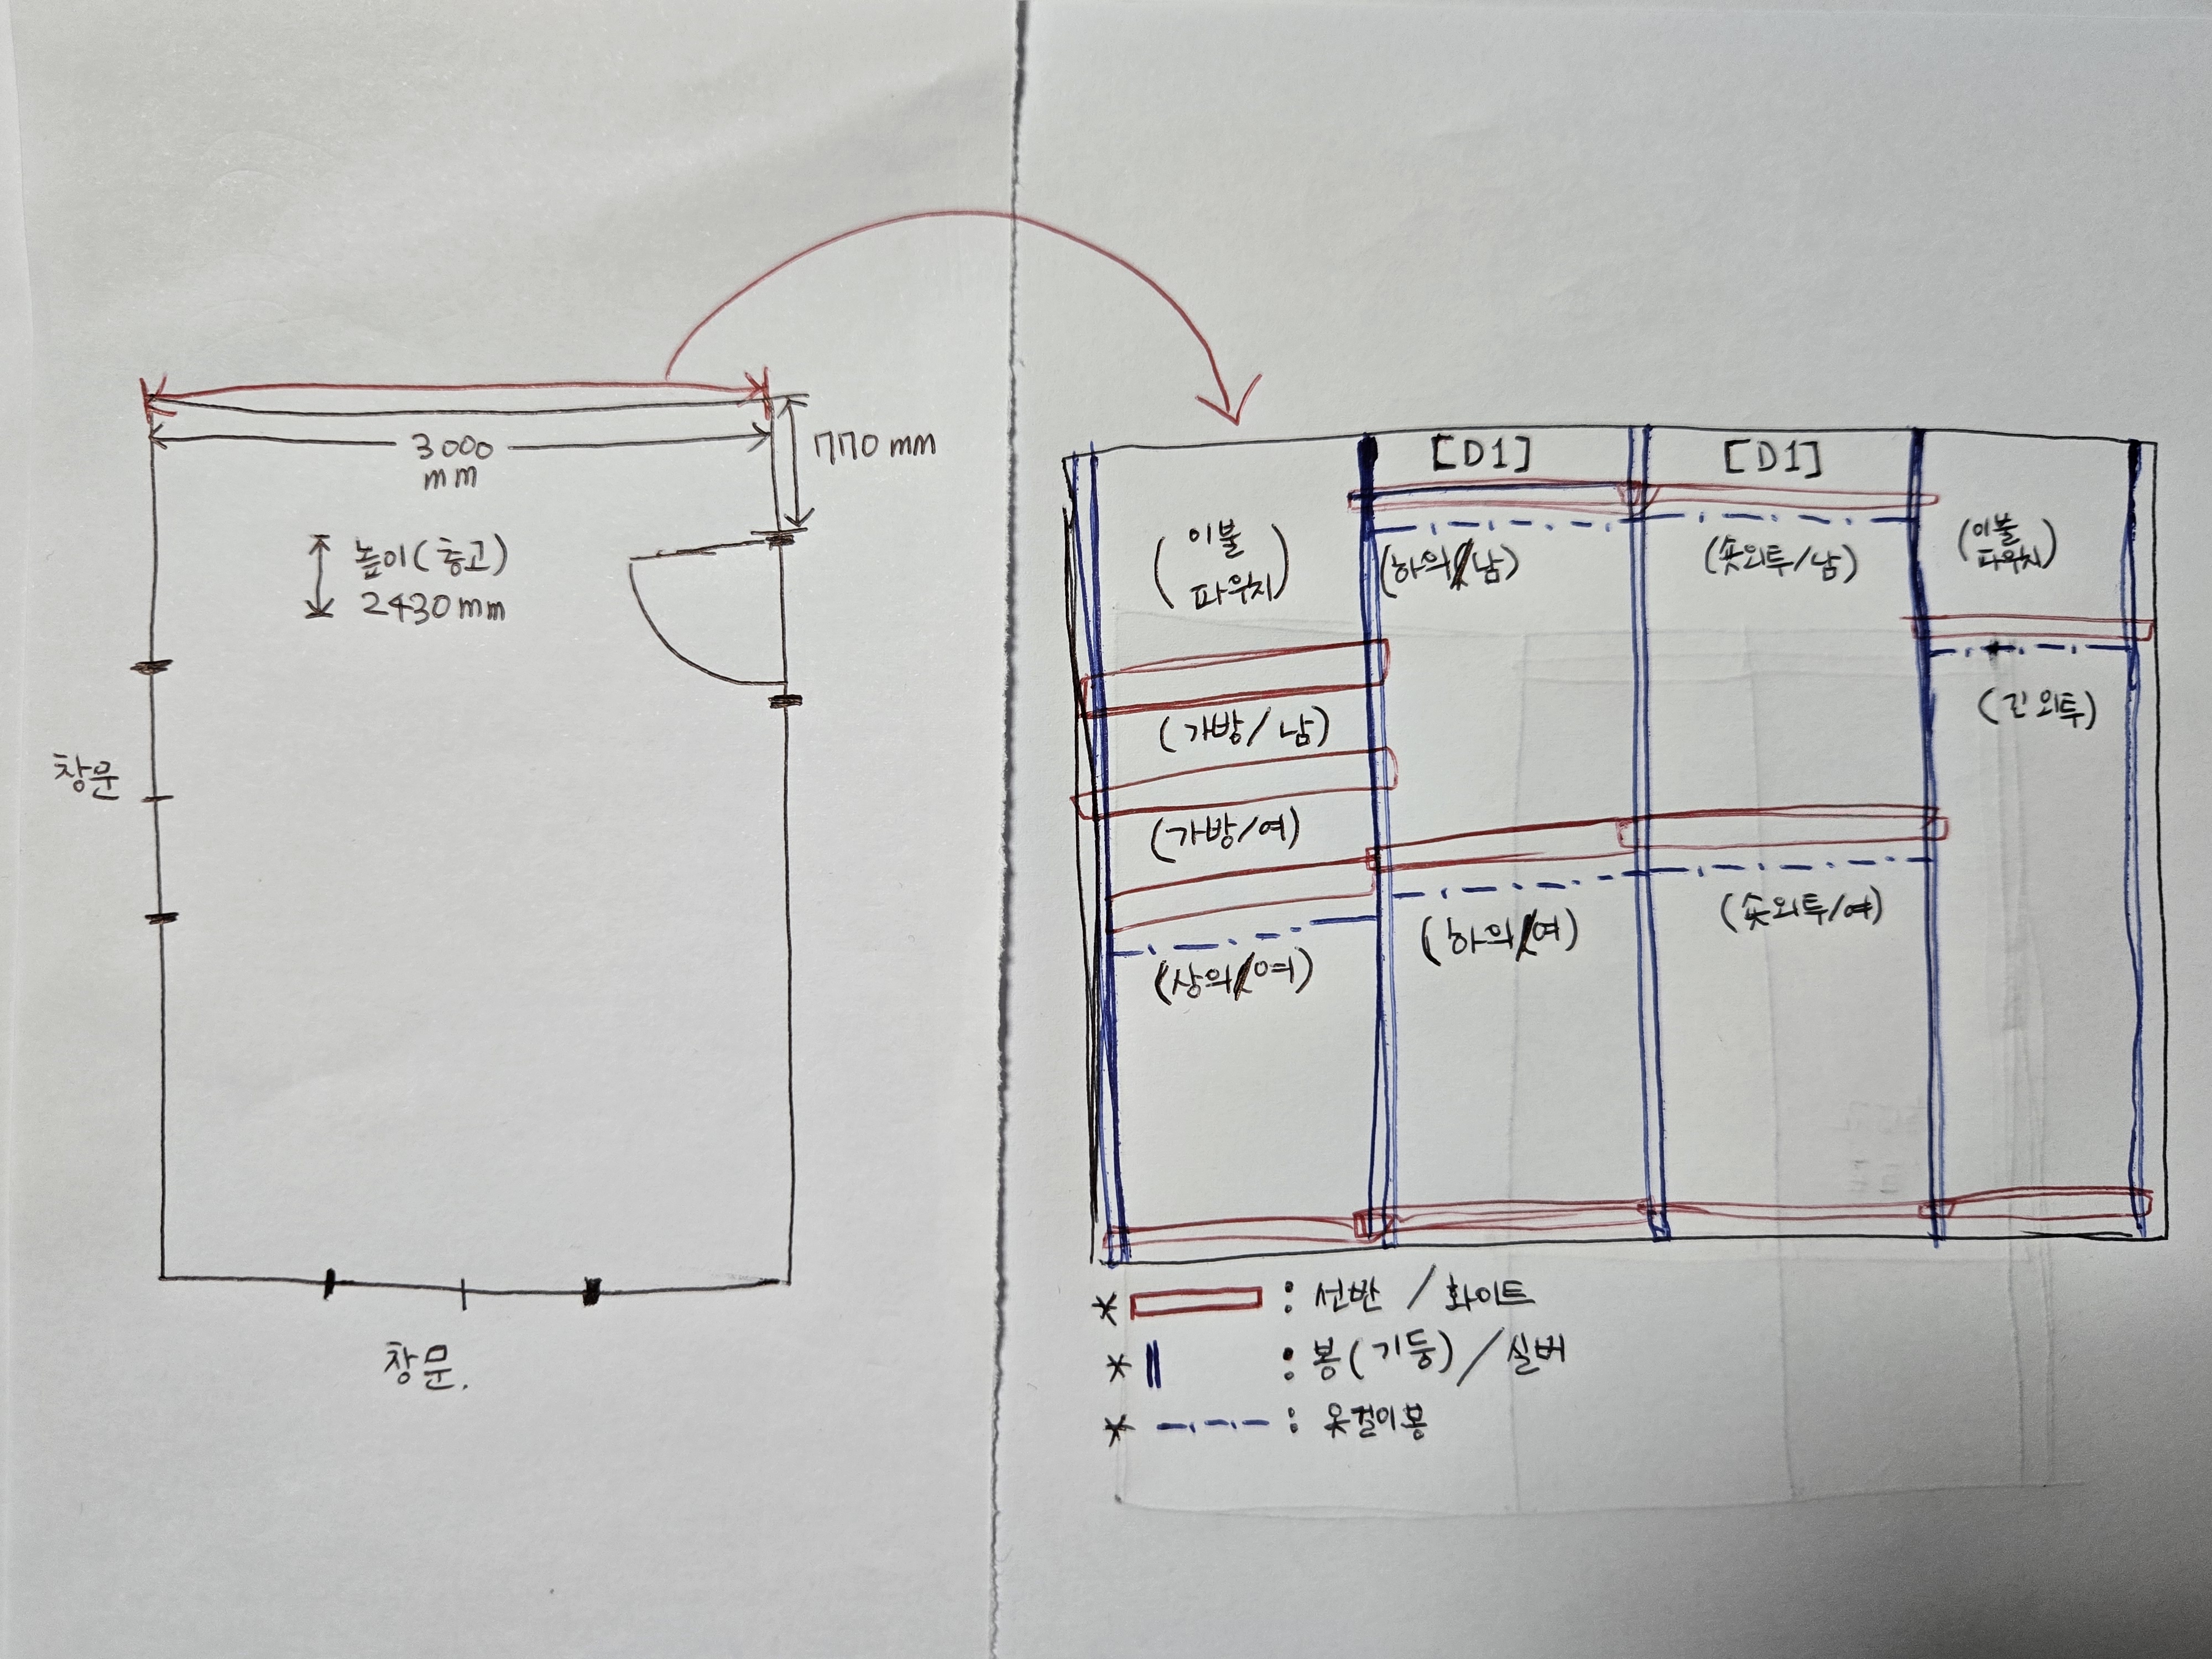 3000
mm
770mm
높이(층고)
2430mm
창문
창문.
[D1]
[D1]
(이불
파우치)
(하의/남)
(숏외투/남)
(이불
파우치)
(가방/남)
(긴외투)
(가방/여)
(상의/여)
(하의/여)
(숏외투/여)
* : 선반 / 화이트
* : 봉(기둥) / 실버
* : 옷걸이봉